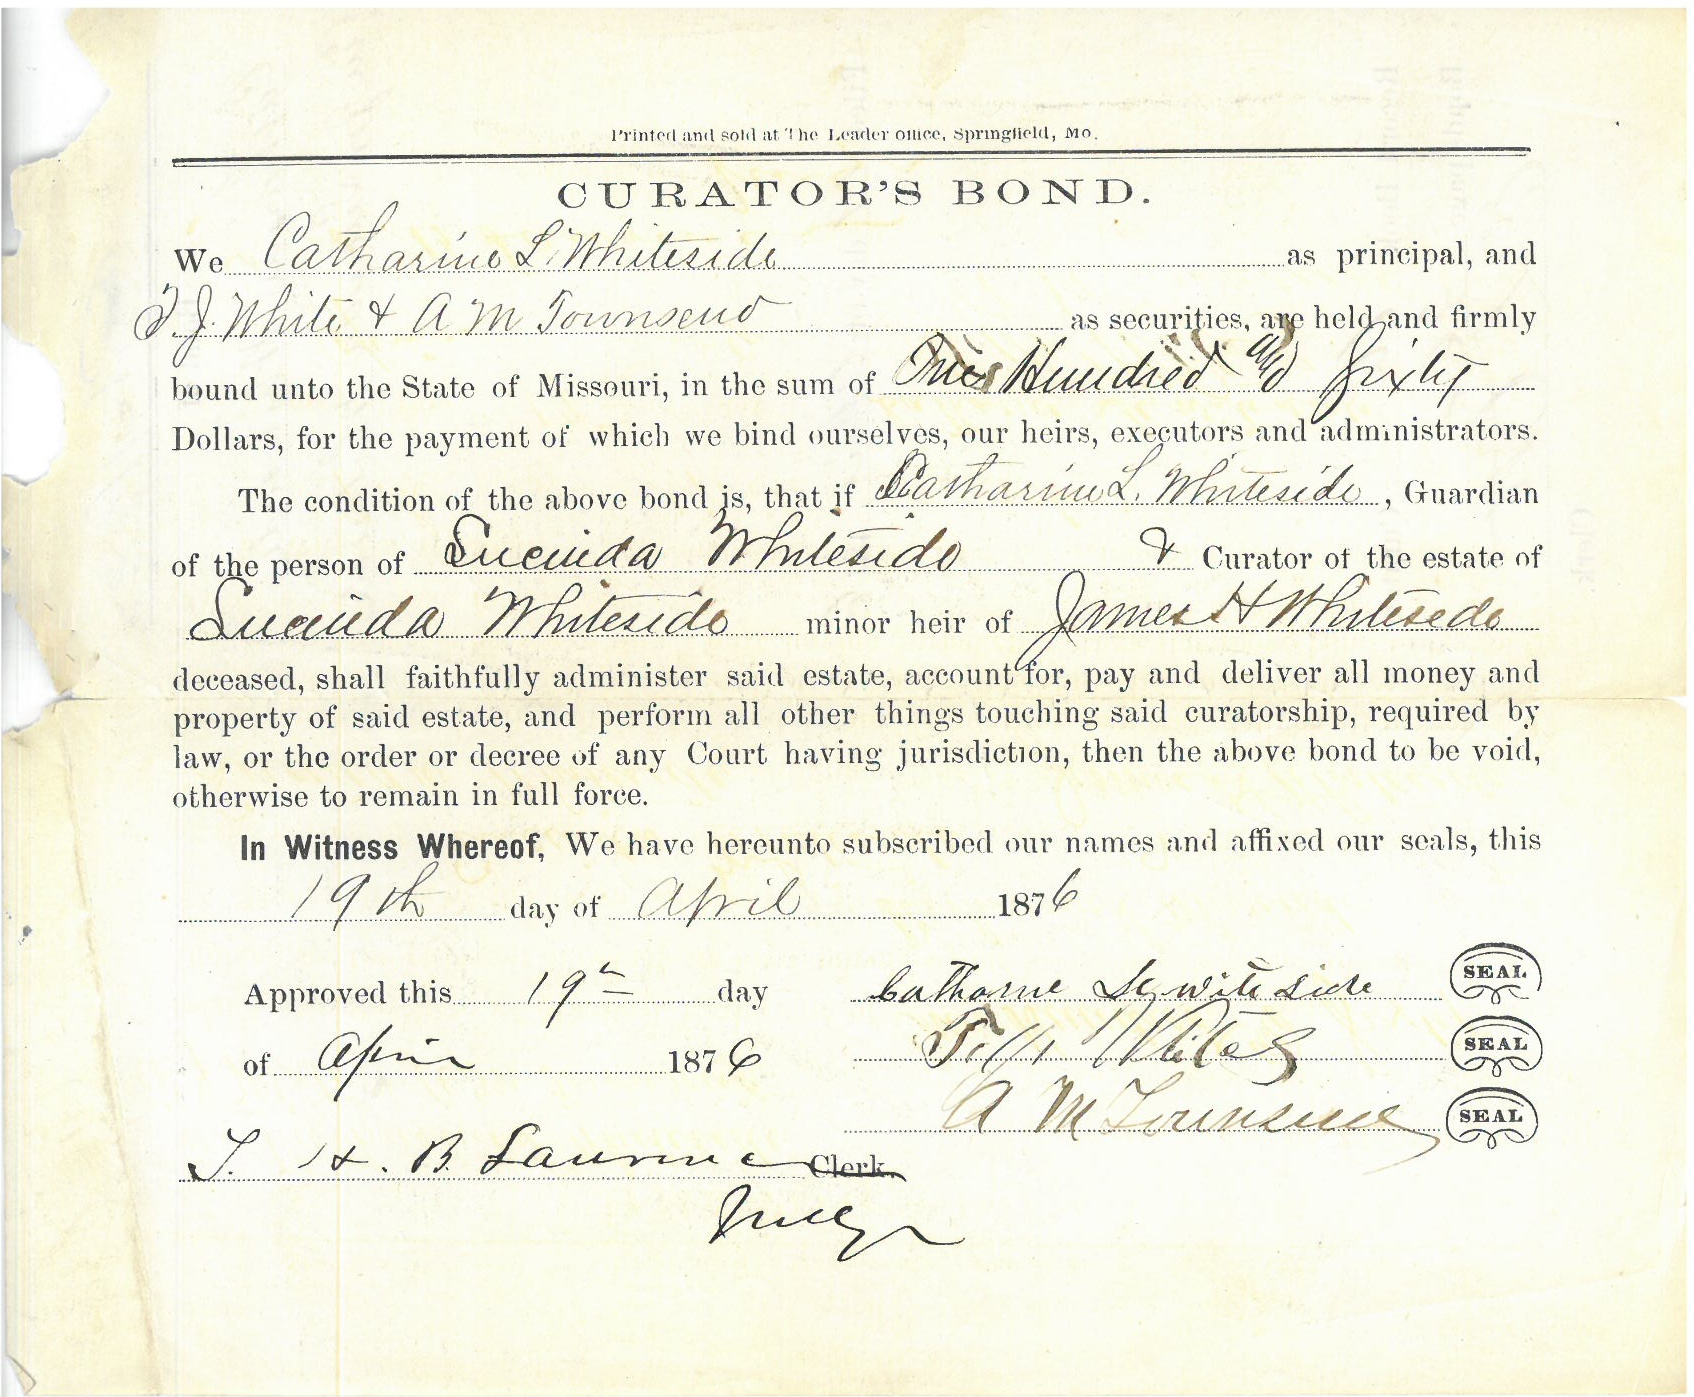 Printed and sold at The Leader office, Springfield, Mo.
CURATOR'S BOND.
We Catharine L. Whiteside as principal, and
T. J. White & A M Townsend as securities, are held and firmly
bound unto the State of Missouri, in the sum of One Hundred and Sixty
Dollars, for the payment of which we bind ourselves, our heirs, executors and administrators.
The condition of the above bond is, that if Catharine L. Whiteside, Guardian
of the person of Lucinda Whiteside & Curator of the estate of
Lucinda Whiteside minor heir of James H Whiteside
deceased, shall faithfully administer said estate, account for, pay and deliver all money and
property of said estate, and perform all other things touching said curatorship, required by
law, or the order or decree of any Court having jurisdiction, then the above bond to be void,
otherwise to remain in full force.
In Witness Whereof, We have hereunto subscribed our names and affixed our seals, this
19th day of April 1876
Approved this 19th day
of April 1876
Cathorne L wite side SEAL
White SEAL
A M Townsend SEAL
T. H. B. Lawrence Clerk.
Judge